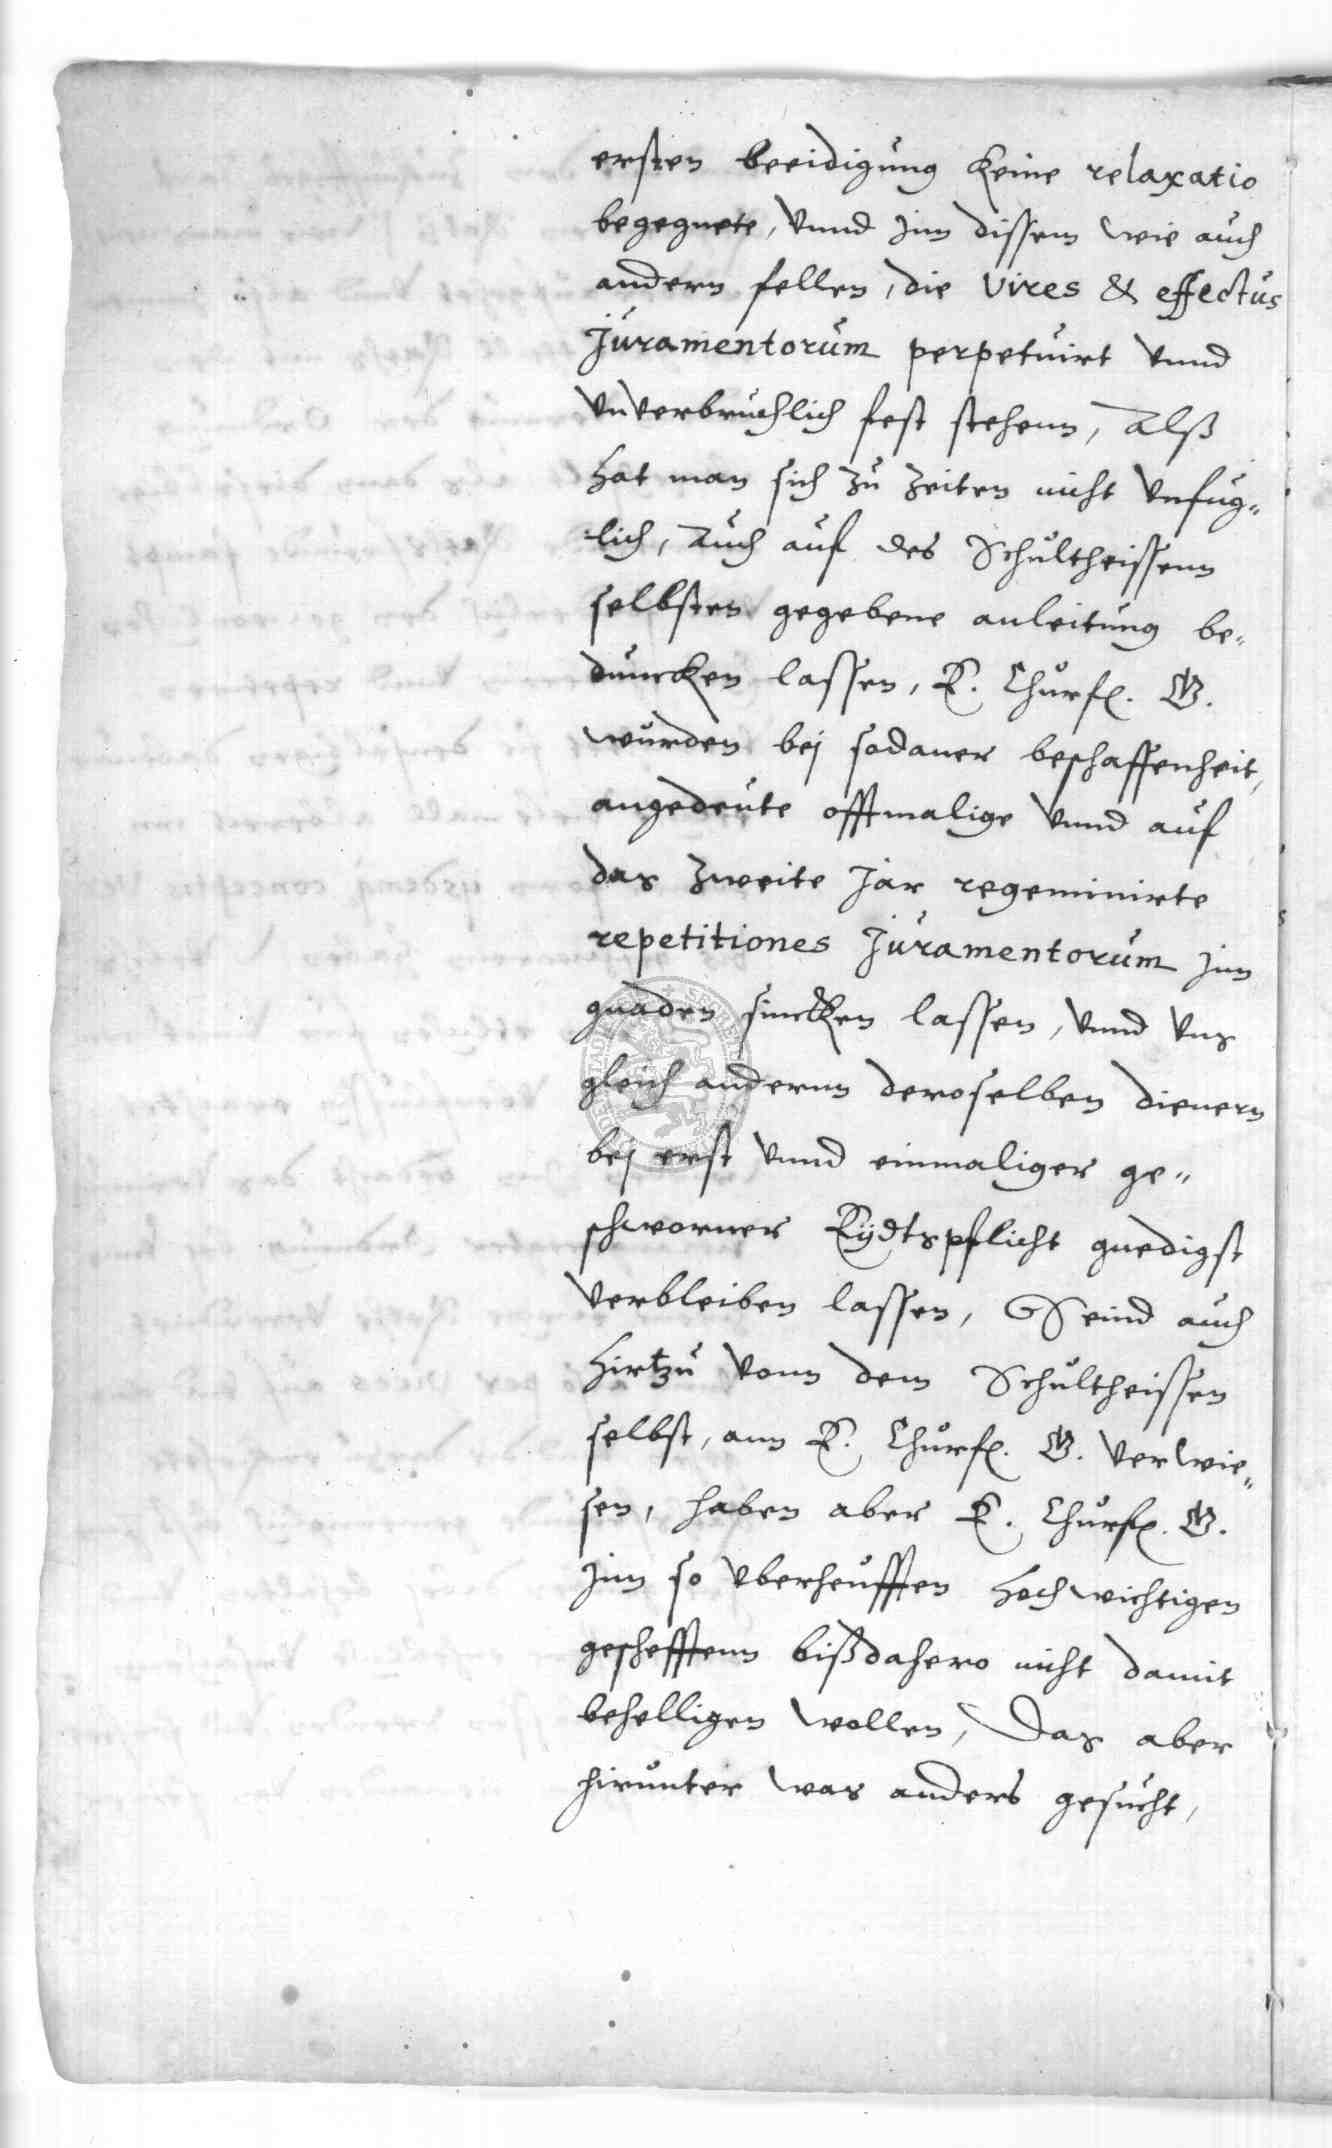 ersten beeidigung keine relaxatio
begegnete, vnnd jnn dissem wie auch
andern fellen, die vires & effectus
juramentorum perpetuirt vnnd
vnverbruchlich fest stehenn, Alß
hat man sich zu zeiten nicht vnfug„
lich, Auch auf des Schultheissenn
selbsten gegebene anleitung be„
duncken lassen, E. Churfl. G.
wurden bej sodaner beschaffenheit,
angedeute offtmalige vnnd auf
das zweite jar regeminirte
repetitiones juramentorum jnn
gnaden sincken lassen, vnnd vns
gleich andernn deroselben dienern
bej erst vnnd einmaliger ge„
schworner Eydtspflicht gnedigst
verbleiben lassen, Seind auch
hirtzu vonn dem Schultheissen
selbst, ann E. Churfl. G. verwie„
sen, haben aber E. Churfl. G.
jnn so vberheufften hochwichtigen
geschefftenn bißdahero nicht damit
behelligen wollen, Das aber
hirunter was anders gesucht,